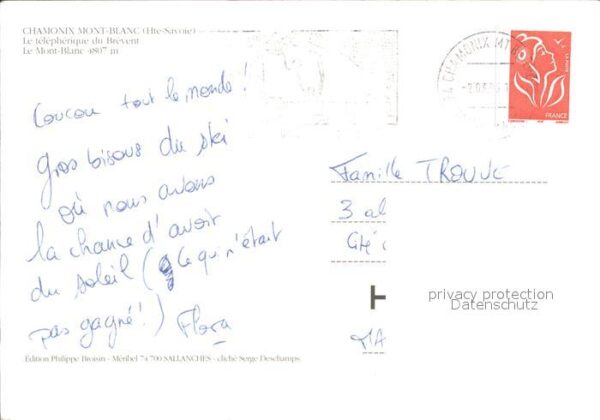 CHAMONIX MONT-BLANC (Hte-Savoie)
Le téléphérique du Brévent
Le Mont-Blanc 4807 m
CHAMONIX MT
LA POSTE
FRANCE
Coucou tout le monde !
Gros bisous du ski
où nous avons
la chance d'avoir
du soleil (ce qui n'était
pas gagné !) Flora
Famille TROUVE
3 al
Cité
privacy protection
Datenschutz
MA
Édition Philippe Broisin - Méribel 74 700 SALLANCHES - cliché Serge Deschamps